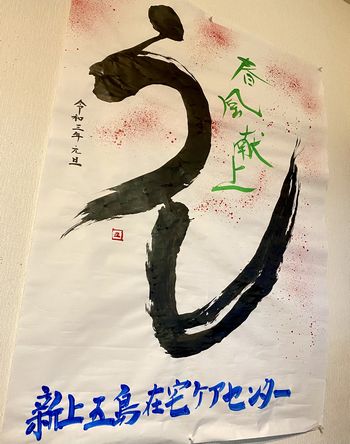 春風献上
うし
令和三年元旦
新上五島在宅ケアセンター